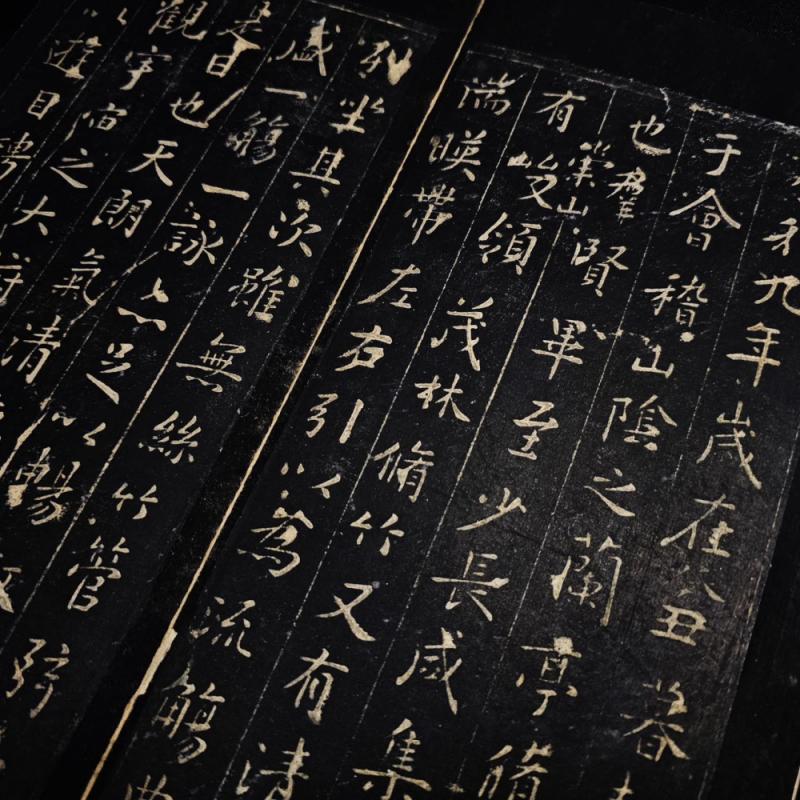 和九年歲在癸丑暮
于會稽山陰之蘭亭脩
也羣賢畢至少長咸集
有崇山峻領茂林脩竹又有清
湍暎帶左右引以為流觴曲
列坐其次雖無絲竹管弦
盛一觴一詠亦足以暢
是日也天朗氣清
觀宇宙之大俯
以遊目騁